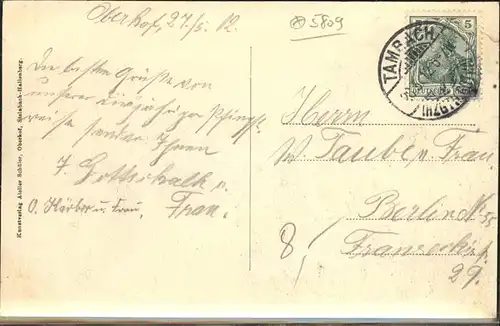 Oberhof, 27/5. 12.
5809
Die besten Grüße von
unserer diesjährigen Pfingst-
reise senden Ihnen
F. Gottschalk u.
Frau.
O. Körber u. Frau,
Kunstverlag Atelier Schütler, Oberhof, Steinbach-Hallenberg.
5
TAMBACH
Herrn
W. Taube u. Frau
Berlin N
8/
Franseckistr.
29.